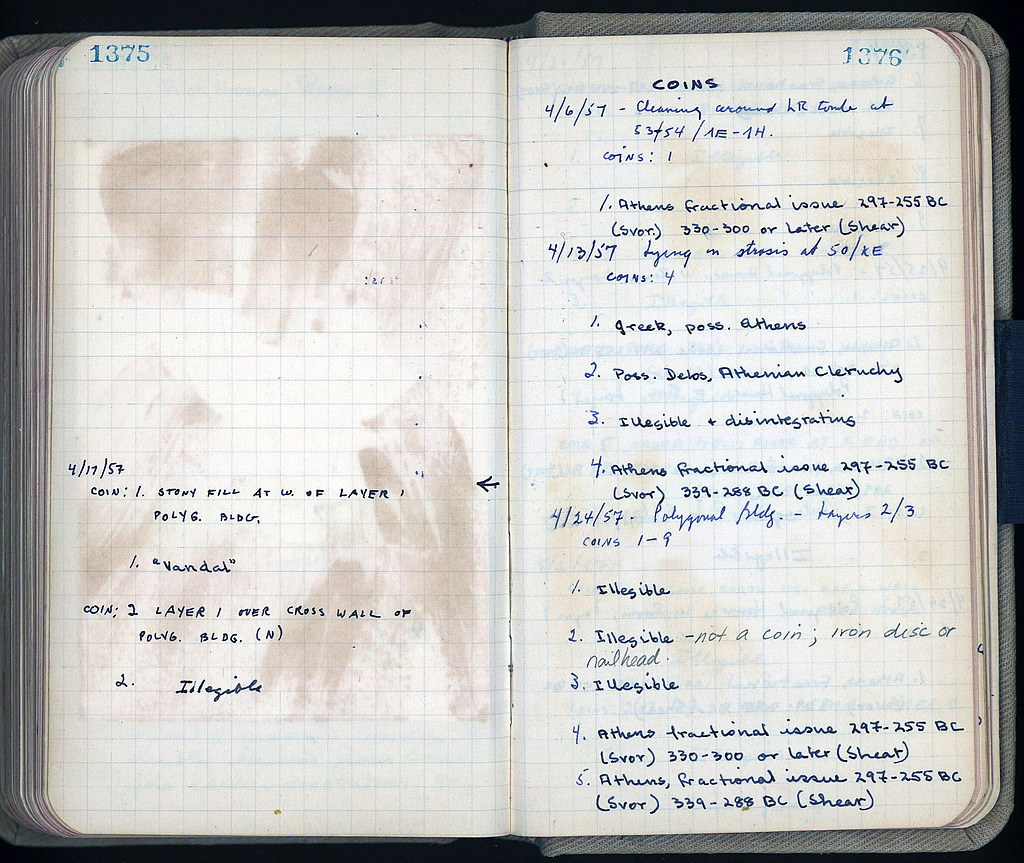 1375
4/17/57
COIN: 1. STONY FILL AT W. OF LAYER 1
POLYG. BLDG.
1. "Vandal"
COIN: 2 LAYER 1 OVER CROSS WALL OF
POLYG. BLDG. (N)
2. Illegible
1376
COINS
4/6/57 - Cleaning around LR tomb at
53+54 / 1E-1H.
COINS: 1
1. Athens fractional issue 297-255 BC
(Svor.) 330-300 or later (Shear)
4/13/57 Lying on strosis at 50/KE
COINS: 4
1. Greek, poss. Athens
2. Poss. Delos, Athenian Cleruchy
3. Illegible + disintegrating
4. Athens fractional issue 297-255 BC
(Svor) 339-288 BC (Shear)
4/24/57 - Polygonal Bldg. - Layers 2/3
COINS 1-9
1. Illegible
2. Illegible - not a coin; iron disc or
nailhead.
3. Illegible
4. Athens fractional issue 297-255 BC
(Svor) 330-300 or later (Shear)
5. Athens, fractional issue 297-255 BC
(Svor) 339-288 BC (Shear)